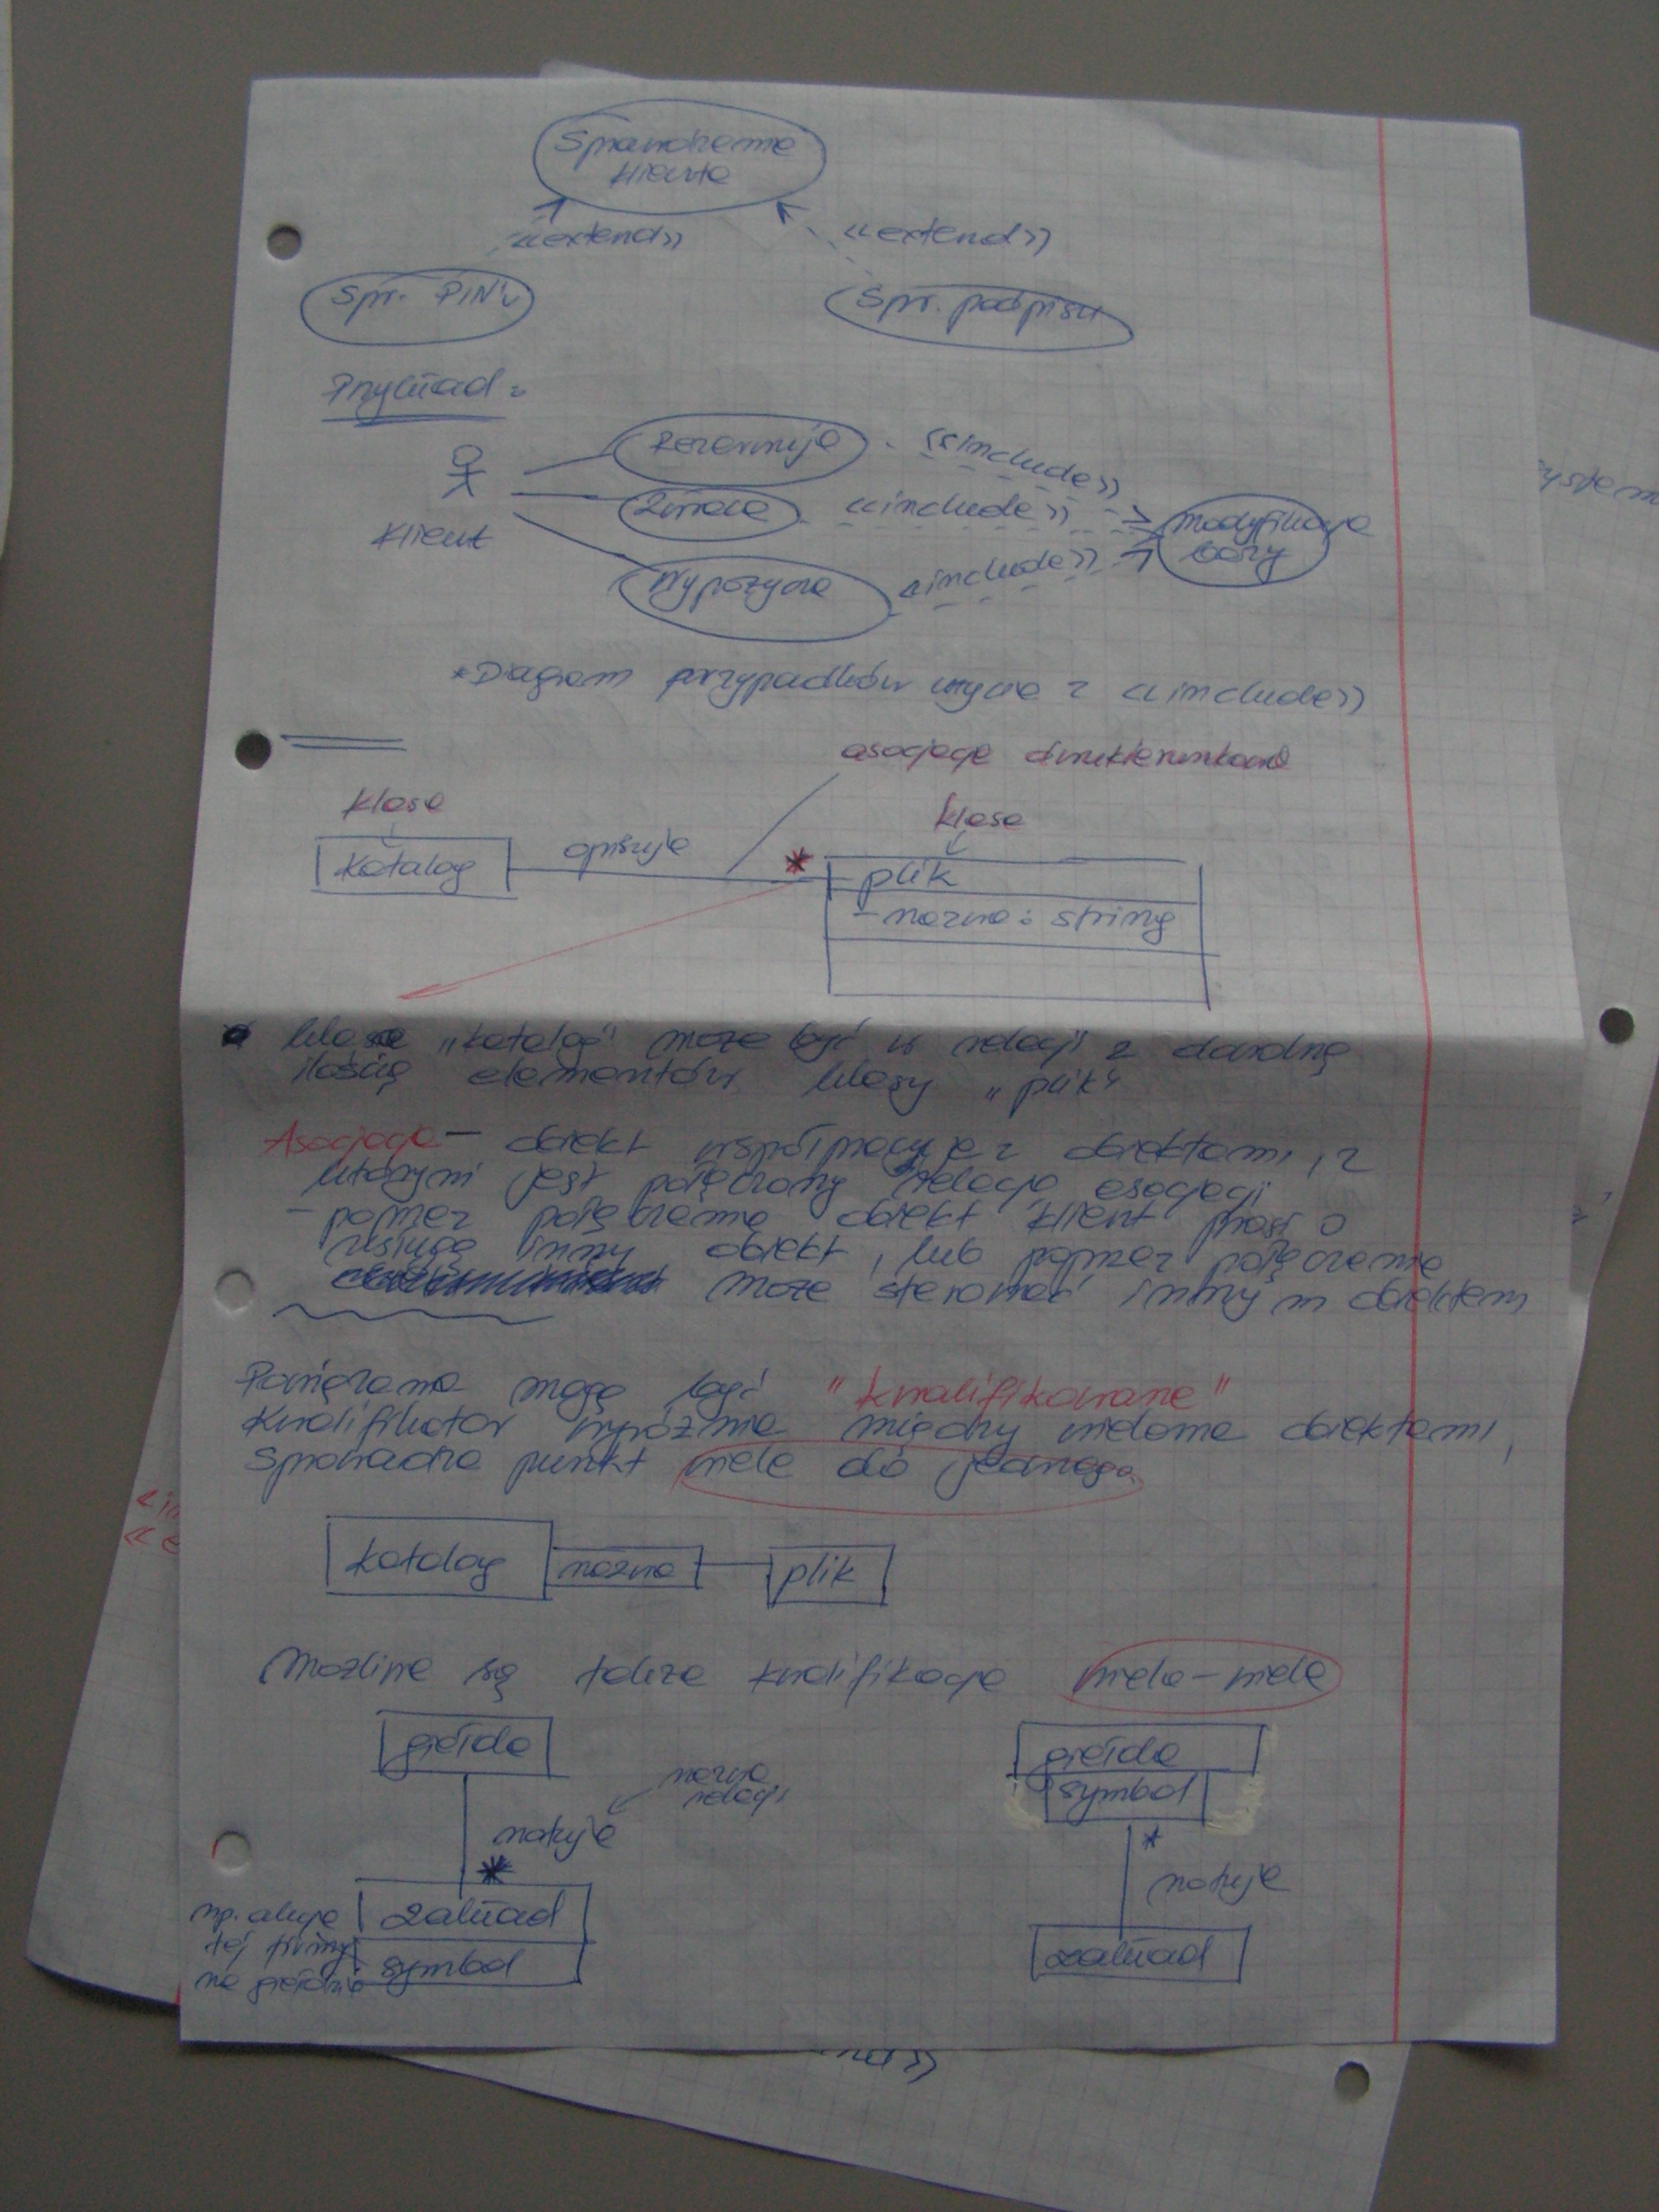 Sprawdzenie
klienta
«extend» «extend»
Spr. PIN'u Spr. podpisu
Przykład:
Rezerwuje «include»
Zwraca «include» modyfikacja
bazy
Klient
Wypożycza «include»
*Diagram przypadków użycia z «include»
asocjacja dwukierunkowa
klasa klasa
katalog opisuje * plik
- nazwa: string
klasa „katalog" może być w relacji z dowolną
ilością elementów klasy „plik"
Asocjacja - obiekt współpracuje z obiektami, z
którymi jest połączony relacją asocjacji
- poprzez połączenie obiekt klient prosi o
usługę inny obiekt, lub poprzez połączenie
może sterować innym obiektem
Powiązania mogą być "kwalifikowane"
Kwalifikator wyróżnia między wieloma obiektami,
sprowadza punkt wiele do jednego.
katalog nazwa plik
Możliwe są także kwalifikacje wiele-wiele
giełda giełda
symbol
nazwa
relacji
notuje *
* notuje
np. akcje zakład
tej firmy
na giełdzie symbol zakład
ystem